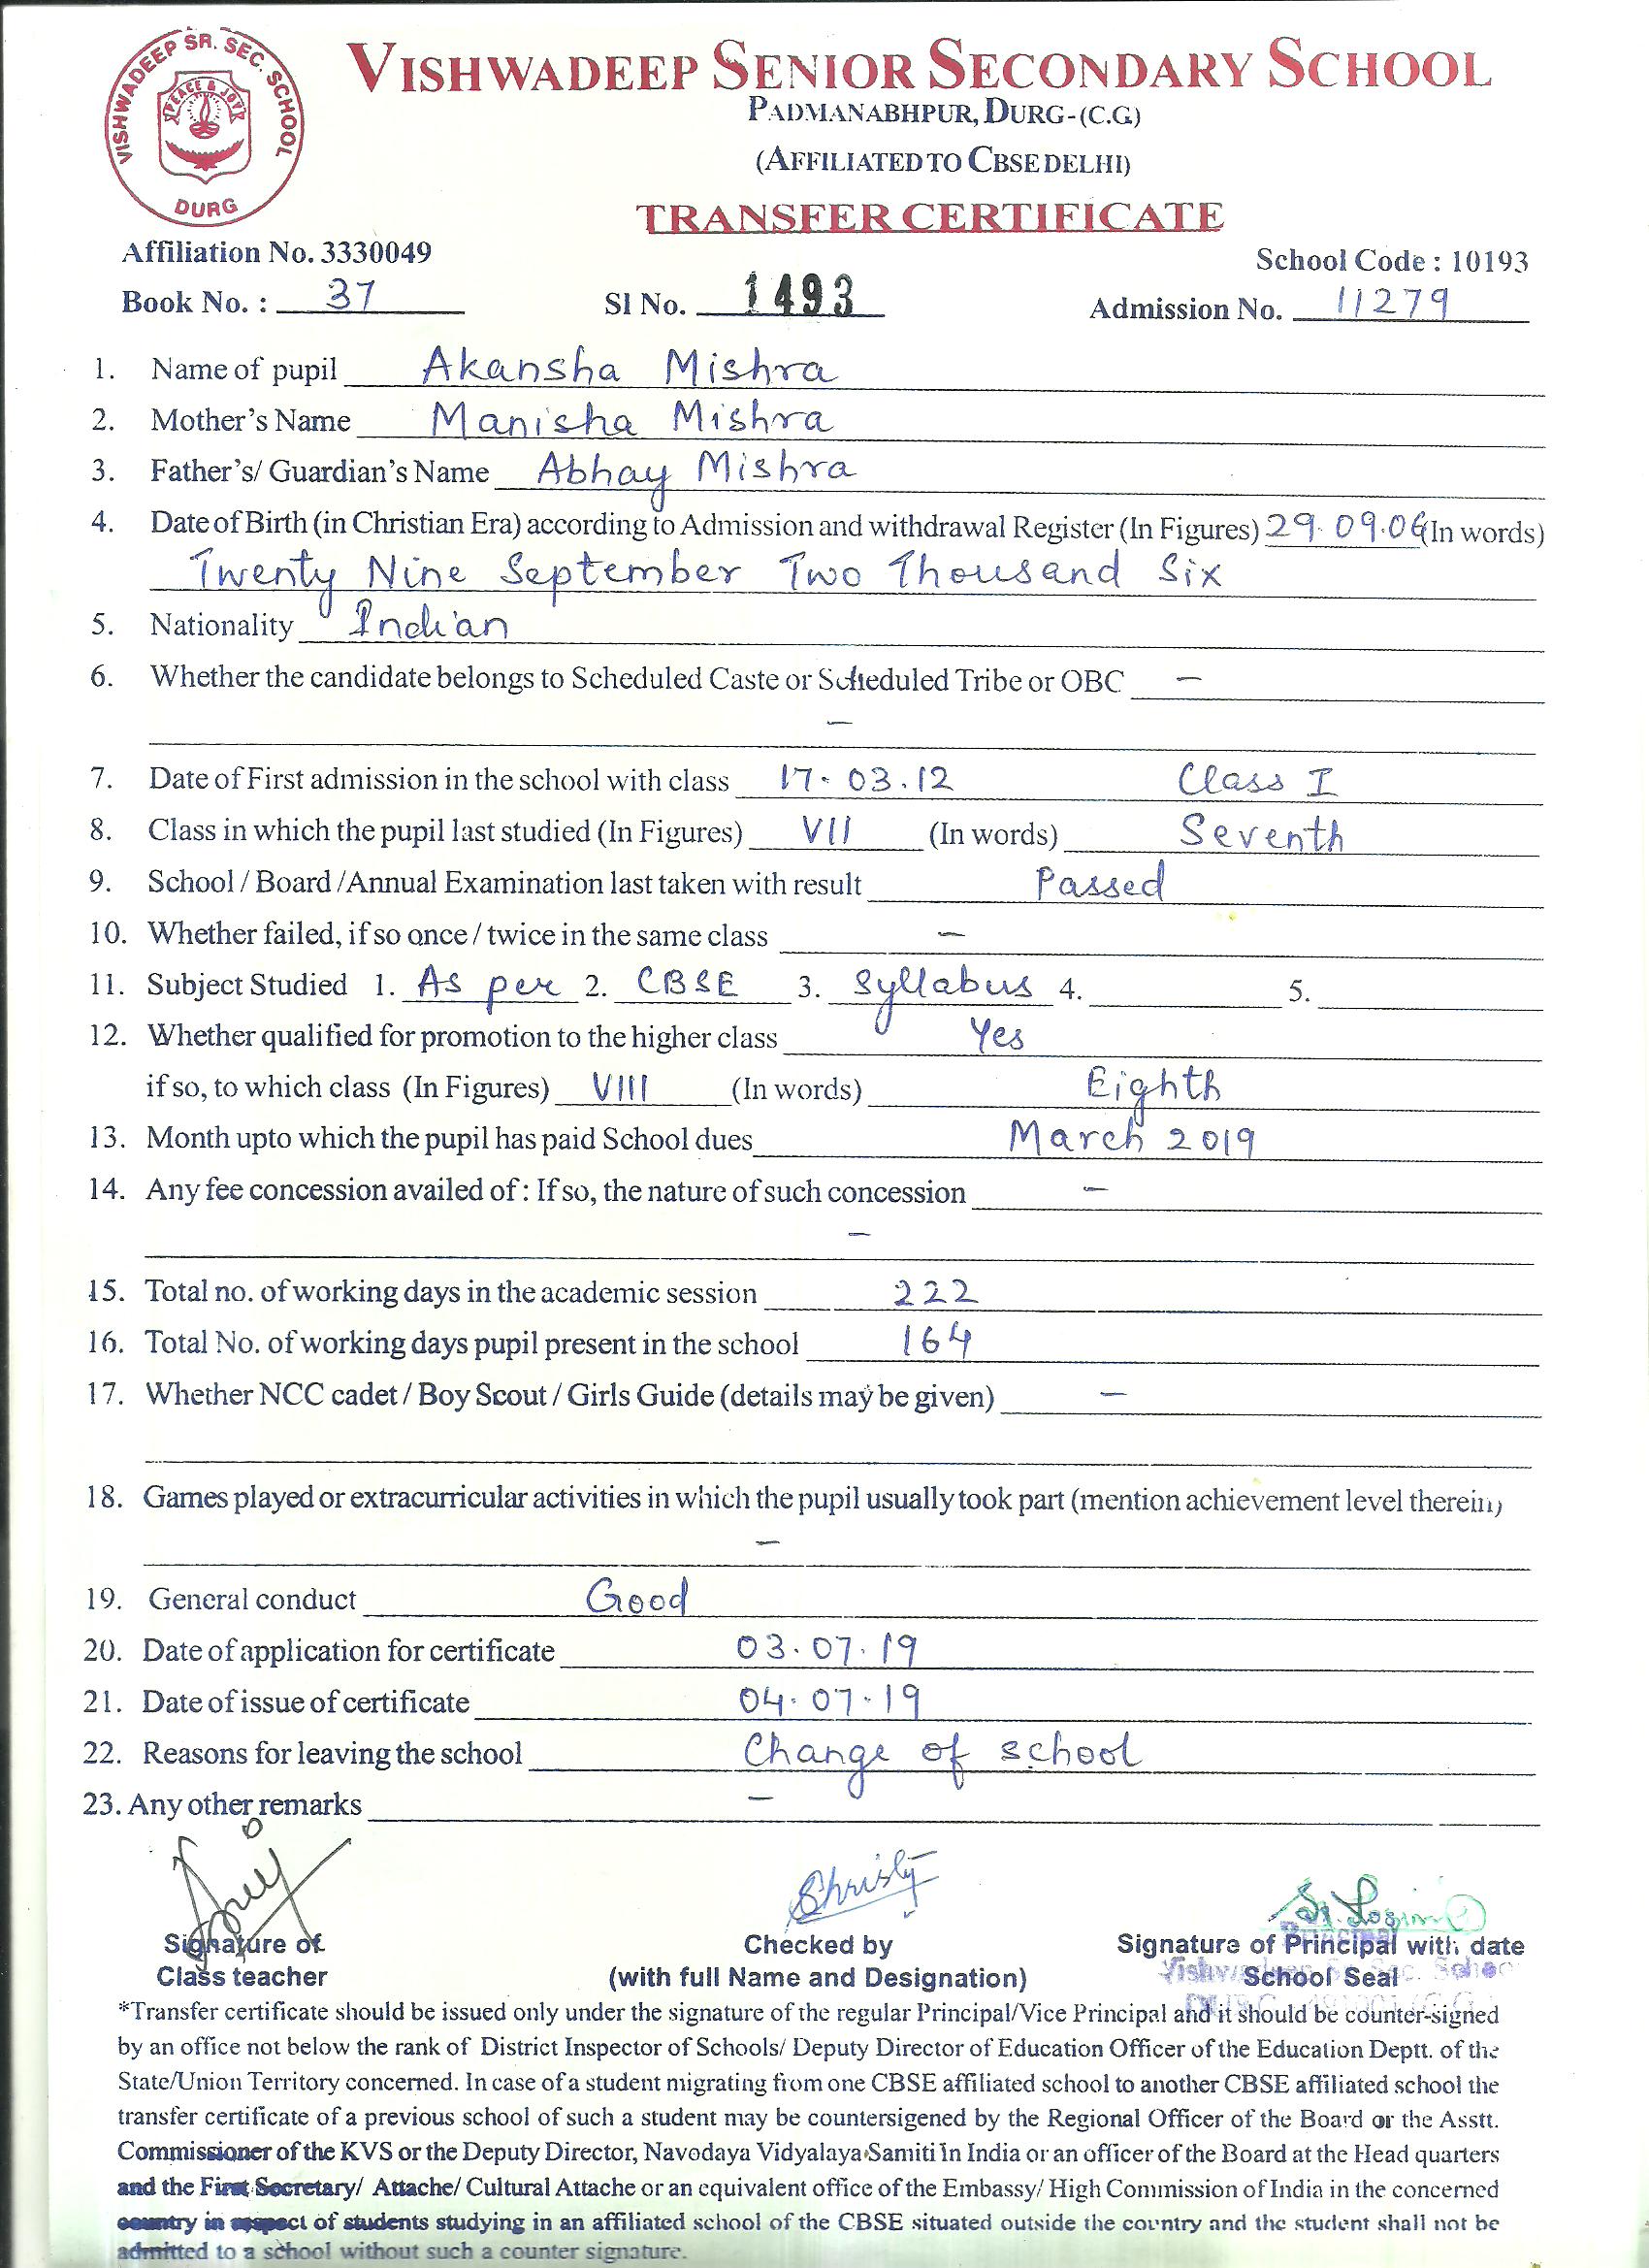 VISHWADEEP SR. SEC. SCHOOL
PEACE & JOY
DURG
VISHWADEEP SENIOR SECONDARY SCHOOL
PADMANABHPUR, DURG-(C.G.)
(AFFILIATED TO CBSE DELHI)
TRANSFER CERTIFICATE
Affiliation No. 3330049
School Code : 10193
Book No. : 37 Sl No. 1493 Admission No. 11279
1. Name of pupil Akansha Mishra
2. Mother's Name Manisha Mishra
3. Father's/ Guardian's Name Abhay Mishra
4. Date of Birth (in Christian Era) according to Admission and withdrawal Register (In Figures) 29.09.06 (In words)
Twenty Nine September Two Thousand Six
5. Nationality Indian
6. Whether the candidate belongs to Scheduled Caste or Scheduled Tribe or OBC –
–
7. Date of First admission in the school with class 17.03.12 Class I
8. Class in which the pupil last studied (In Figures) VII (In words) Seventh
9. School / Board /Annual Examination last taken with result Passed
10. Whether failed, if so once / twice in the same class –
11. Subject Studied 1. As per 2. CBSE 3. Syllabus 4. 5.
12. Whether qualified for promotion to the higher class Yes
if so, to which class (In Figures) VIII (In words) Eighth
13. Month upto which the pupil has paid School dues March 2019
14. Any fee concession availed of : If so, the nature of such concession –
–
15. Total no. of working days in the academic session 222
16. Total No. of working days pupil present in the school 164
17. Whether NCC cadet / Boy Scout / Girls Guide (details may be given) –
18. Games played or extracurricular activities in which the pupil usually took part (mention achievement level therein)
–
19. General conduct Good
20. Date of application for certificate 03.07.19
21. Date of issue of certificate 04.07.19
22. Reasons for leaving the school Change of school
23. Any other remarks –
Christy
Signature of Checked by Signature of Principal with date
Class teacher (with full Name and Designation) School Seal
*Transfer certificate should be issued only under the signature of the regular Principal/Vice Principal and it should be counter-signed
by an office not below the rank of District Inspector of Schools/ Deputy Director of Education Officer of the Education Deptt. of the
State/Union Territory concerned. In case of a student migrating from one CBSE affiliated school to another CBSE affiliated school the
transfer certificate of a previous school of such a student may be countersigened by the Regional Officer of the Board or the Asstt.
Commissioner of the KVS or the Deputy Director, Navodaya Vidyalaya Samiti in India or an officer of the Board at the Head quarters
and the First Secretary/ Attache/ Cultural Attache or an equivalent office of the Embassy/ High Commission of India in the concerned
country in respect of students studying in an affiliated school of the CBSE situated outside the country and the student shall not be
admitted to a school without such a counter signature.